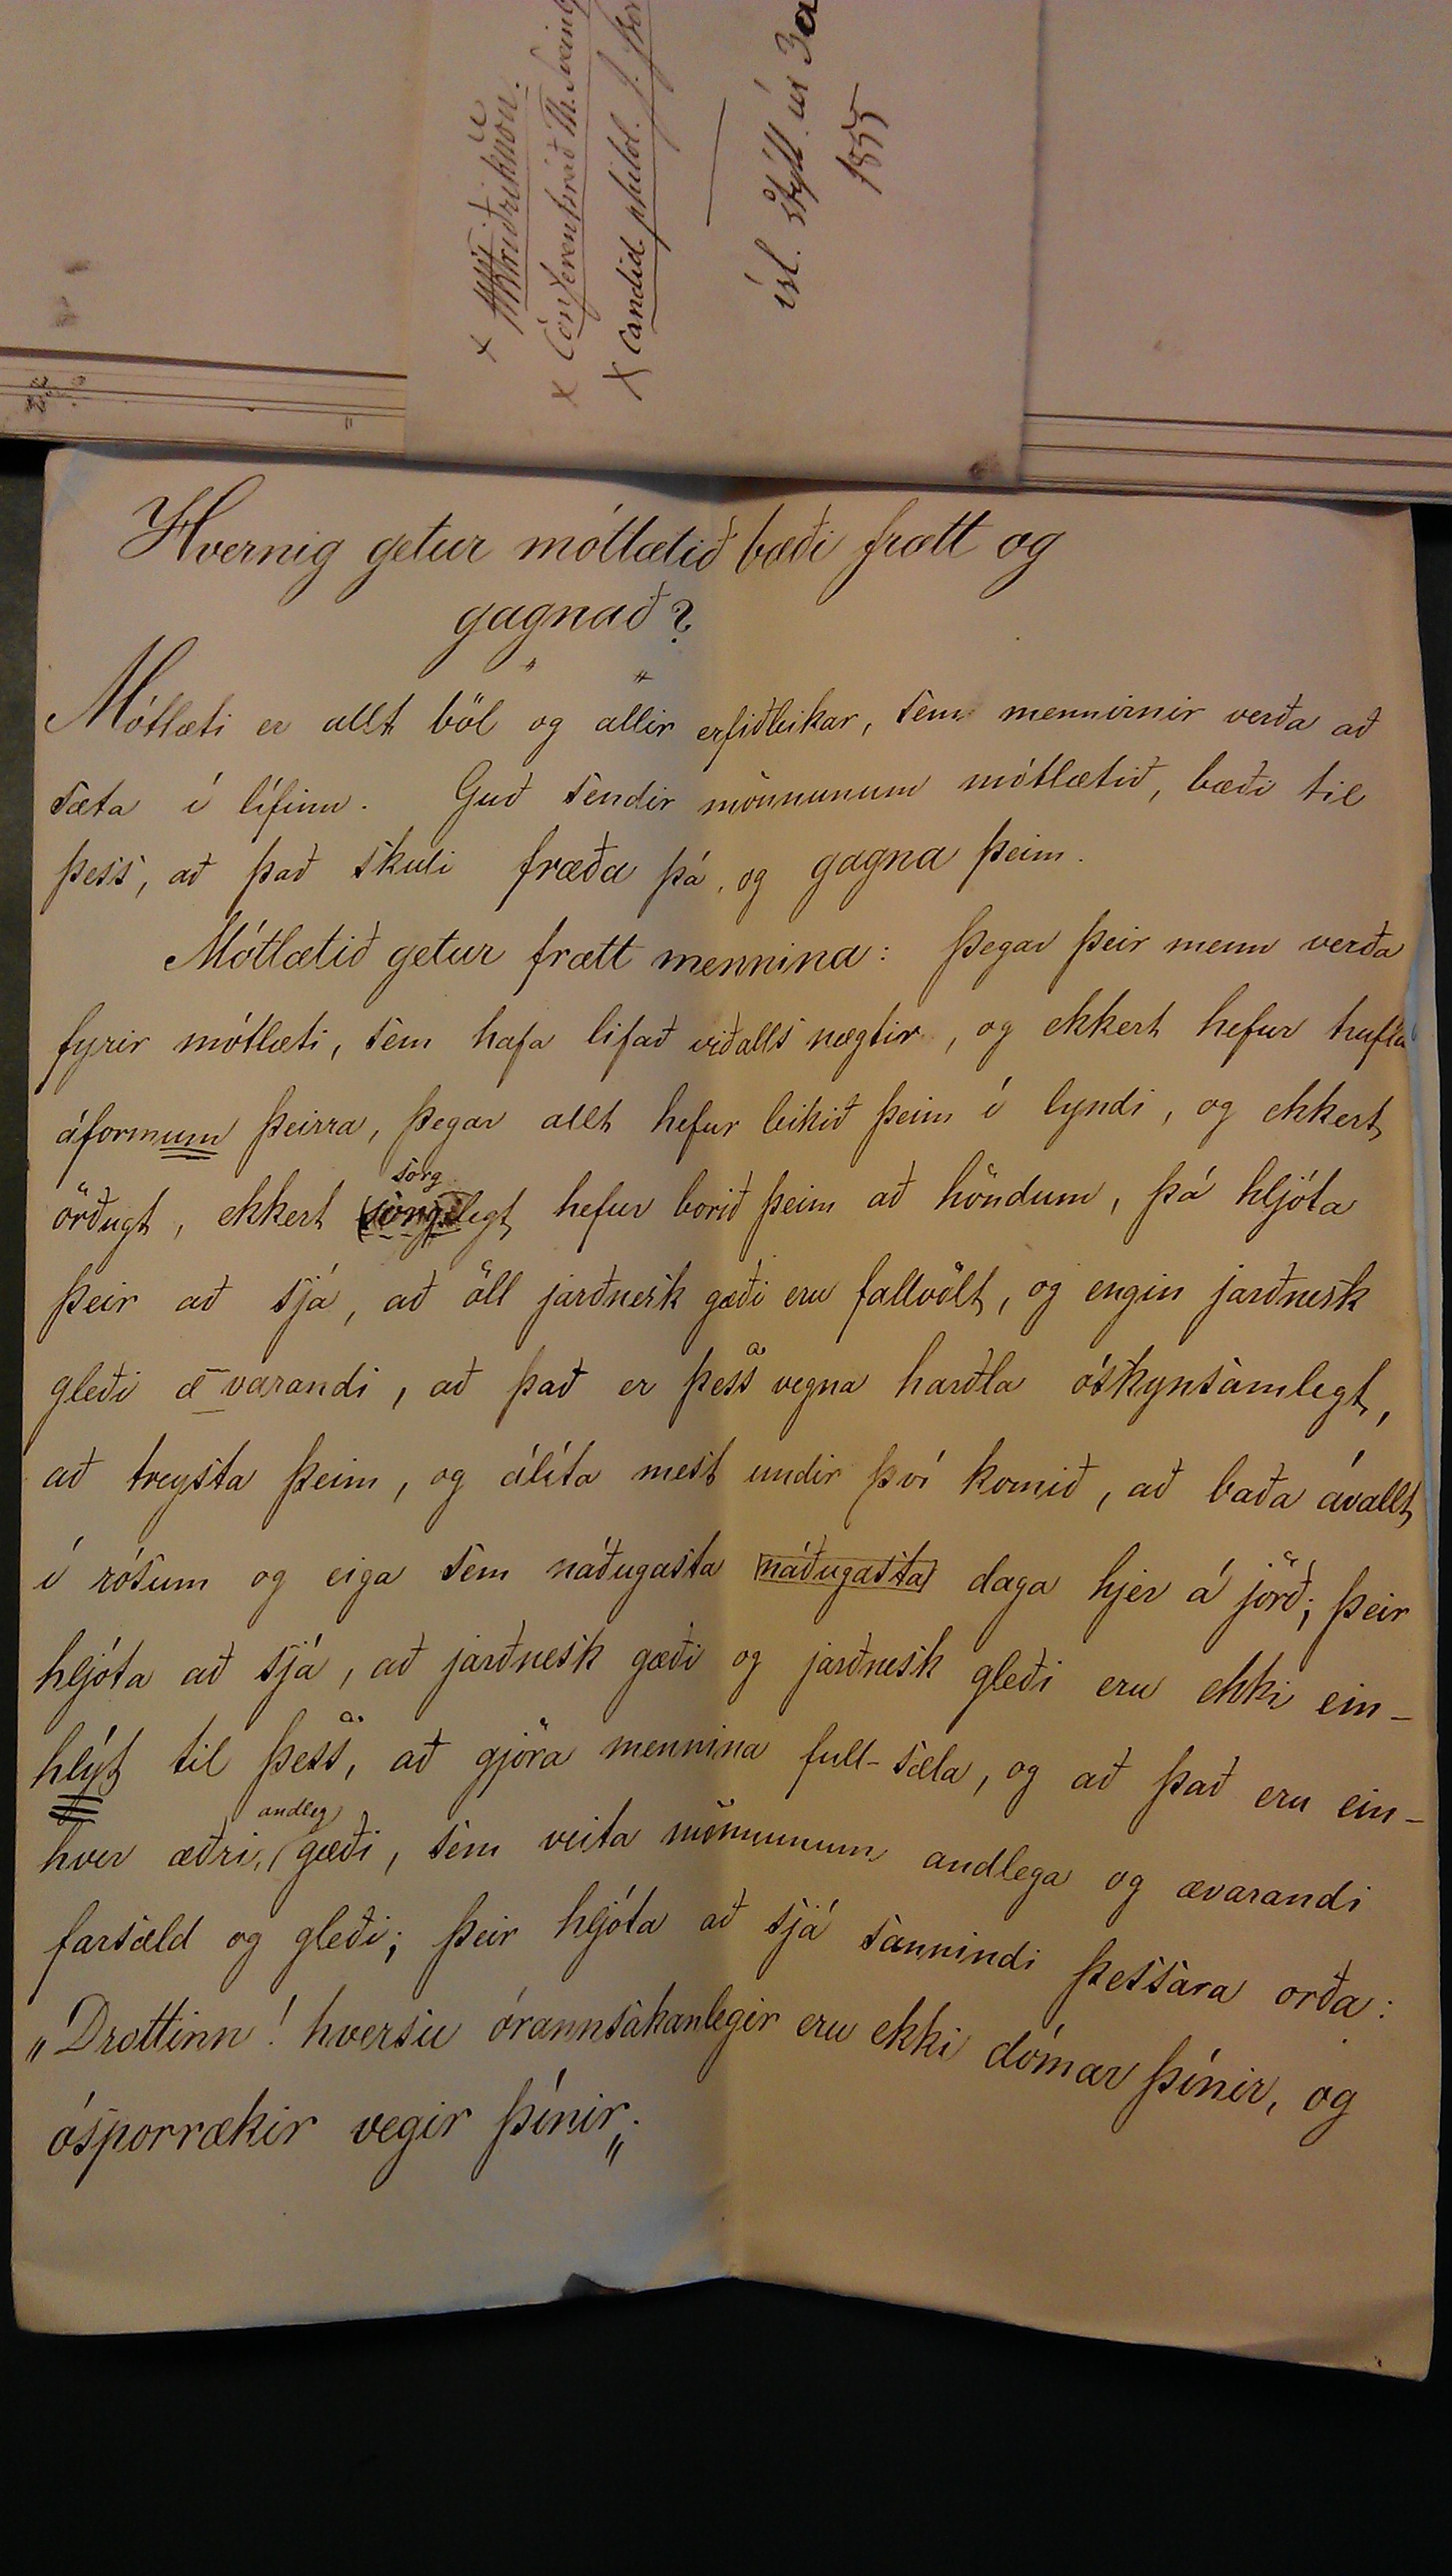 Hvernig getur mótlætið bæði frætt og
gagnað?
Mótlæti er allt böl og allir erfiðleikar, sem mennirnir verða að
sæta í lífinu. Guð sendir mönnunum mótlætið, bæði til
þess, að það skuli fræða þá, og gagna þeim.
Mótlætið getur frætt mennina: Þegar þeir menn verða
fyrir mótlæti, sem hafa lifað við alls nægtir, og ekkert hefur trufla
áformum þeirra, þegar allt hefur leikið þeim í lyndi, og ekkert
sorg
örðugt, ekkert sorglegt hefur borið þeim að höndum, þá hljóta
þeir að sjá, að öll jarðnesk gæði eru fallvölt, og engin jarðnesk
a
gleði ævarandi, að það er þess vegna harðla óskynsamlegt,
að treysta þeim, og álíta mest undir því komið, að baða ávallt
í rósum og eiga sem náðugasta náðugasta daga hjer á jörð; þeir
hljóta að sjá, að jarðnesk gæði og jarðnesk gleði eru ekki ein-
a
hlýt til þess, að gjöra mennina full-sæla, og að það eru ein-
andleg
hver æðri, gæði, sem veita mönnunum andlega og ævarandi
farsæld og gleði; þeir hljóta að sjá sannindi þessara orða:
„Drottinn! hversu órannsakanlegir eru ekki dómar þínir, og
ósporrækir vegir þínir„.
Conferentsráð Th. Sveinb
Candid. philol. J. Þor
ísl. stýll. úr 3a